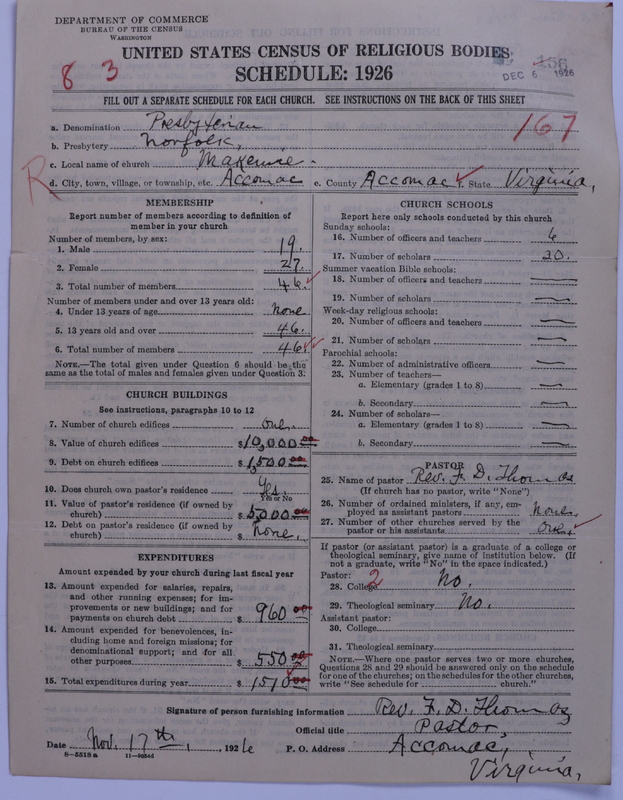 DEPARTMENT OF COMMERCE
BUREAU OF THE CENSUS
WASHINGTON
UNITED STATES CENSUS OF RELIGIOUS BODIES
SCHEDULE: 1926
8 3
DEC 6 1926
FILL OUT A SEPARATE SCHEDULE FOR EACH CHURCH. SEE INSTRUCTIONS ON THE BACK OF THIS SHEET
167
a. Denomination Presbyterian
b. Presbytery Norfolk,
c. Local name of church Makemie.
R
d. City, town, village, or township, etc. Accomac e. County Accomac f. State Virginia,
MEMBERSHIP
Report number of members according to definition of member in your church
Number of members, by sex:
1. Male 19.
2. Female 27.
3. Total number of members 46.
Number of members under and over 13 years old:
4. Under 13 years of age None
5. 13 years old and over 46.
6. Total number of members 46.
NOTE.—The total given under Question 6 should be the
same as the total of males and females given under Question 3.
CHURCH BUILDINGS
See instructions, paragraphs 10 to 12
7. Number of church edifices One.
8. Value of church edifices $10,000.00
9. Debt on church edifices $1,500.00
10. Does church own pastor's residence Yes.
Yes or No
11. Value of pastor's residence (if owned by
church) $5,000.00
12. Debt on pastor's residence (if owned by
church) $ None.
EXPENDITURES
Amount expended by your church during last fiscal year
13. Amount expended for salaries, repairs,
and other running expenses; for im-
provements or new buildings; and for
payments on church debt $ 960.00
14. Amount expended for benevolences, in-
cluding home and foreign missions; for
denominational support; and for all
other purposes $ 550.00
15. Total expenditures during year $ 1510.00
CHURCH SCHOOLS
Report here only schools conducted by this church
Sunday schools:
16. Number of officers and teachers 6
17. Number of scholars 30.
Summer vacation Bible schools:
18. Number of officers and teachers —
19. Number of scholars —
Week-day religious schools:
20. Number of officers and teachers —
21. Number of scholars —
Parochial schools:
22. Number of administrative officers —
23. Number of teachers—
a. Elementary (grades 1 to 8) —
b. Secondary —
24. Number of scholars—
a. Elementary (grades 1 to 8) —
b. Secondary —
PASTOR
25. Name of pastor Rev. F. D. Thomas
(If church has no pastor, write "None")
26. Number of ordained ministers, if any, em-
ployed as assistant pastors None.
27. Number of other churches served by the
pastor or his assistants One.
If pastor (or assistant pastor) is a graduate of a college or
theological seminary, give name of institution below. (If
not a graduate, write "No" in the space indicated.)
Pastor:
28. College 2 No.
29. Theological seminary No.
Assistant pastor:
30. College
31. Theological seminary
NOTE.—Where one pastor serves two or more churches,
Questions 28 and 29 should be answered only on the schedule
for one of the churches; on the schedules for the other churches,
write "See schedule for church."
Signature of person furnishing information Rev. F. D. Thomas
Official title Pastor,
Date Nov. 17th, 1926 P. O. Address Accomac,
Virginia,
8-5518 a